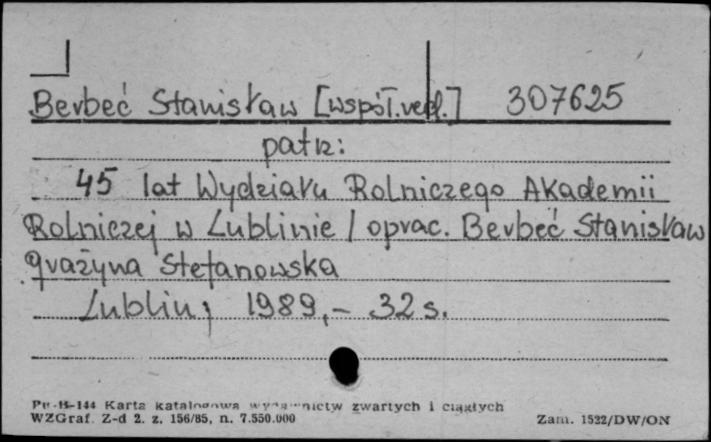 Berbeć Stanisław [współ.red.] 307625
patrz:
45 lat Wydziału Rolniczego Akademii
Rolniczej w Lublinie / oprac. Berbeć Stanisław
Grażyna Stefanowska
Lublin, 1989,- 32 s.
Pu-B-144 Karta katalogowa wydawnictw zwartych i ciągłych
WZGraf. Z-d 2. z. 156/85, n. 7.550.000
Zam. 1522/DW/ON